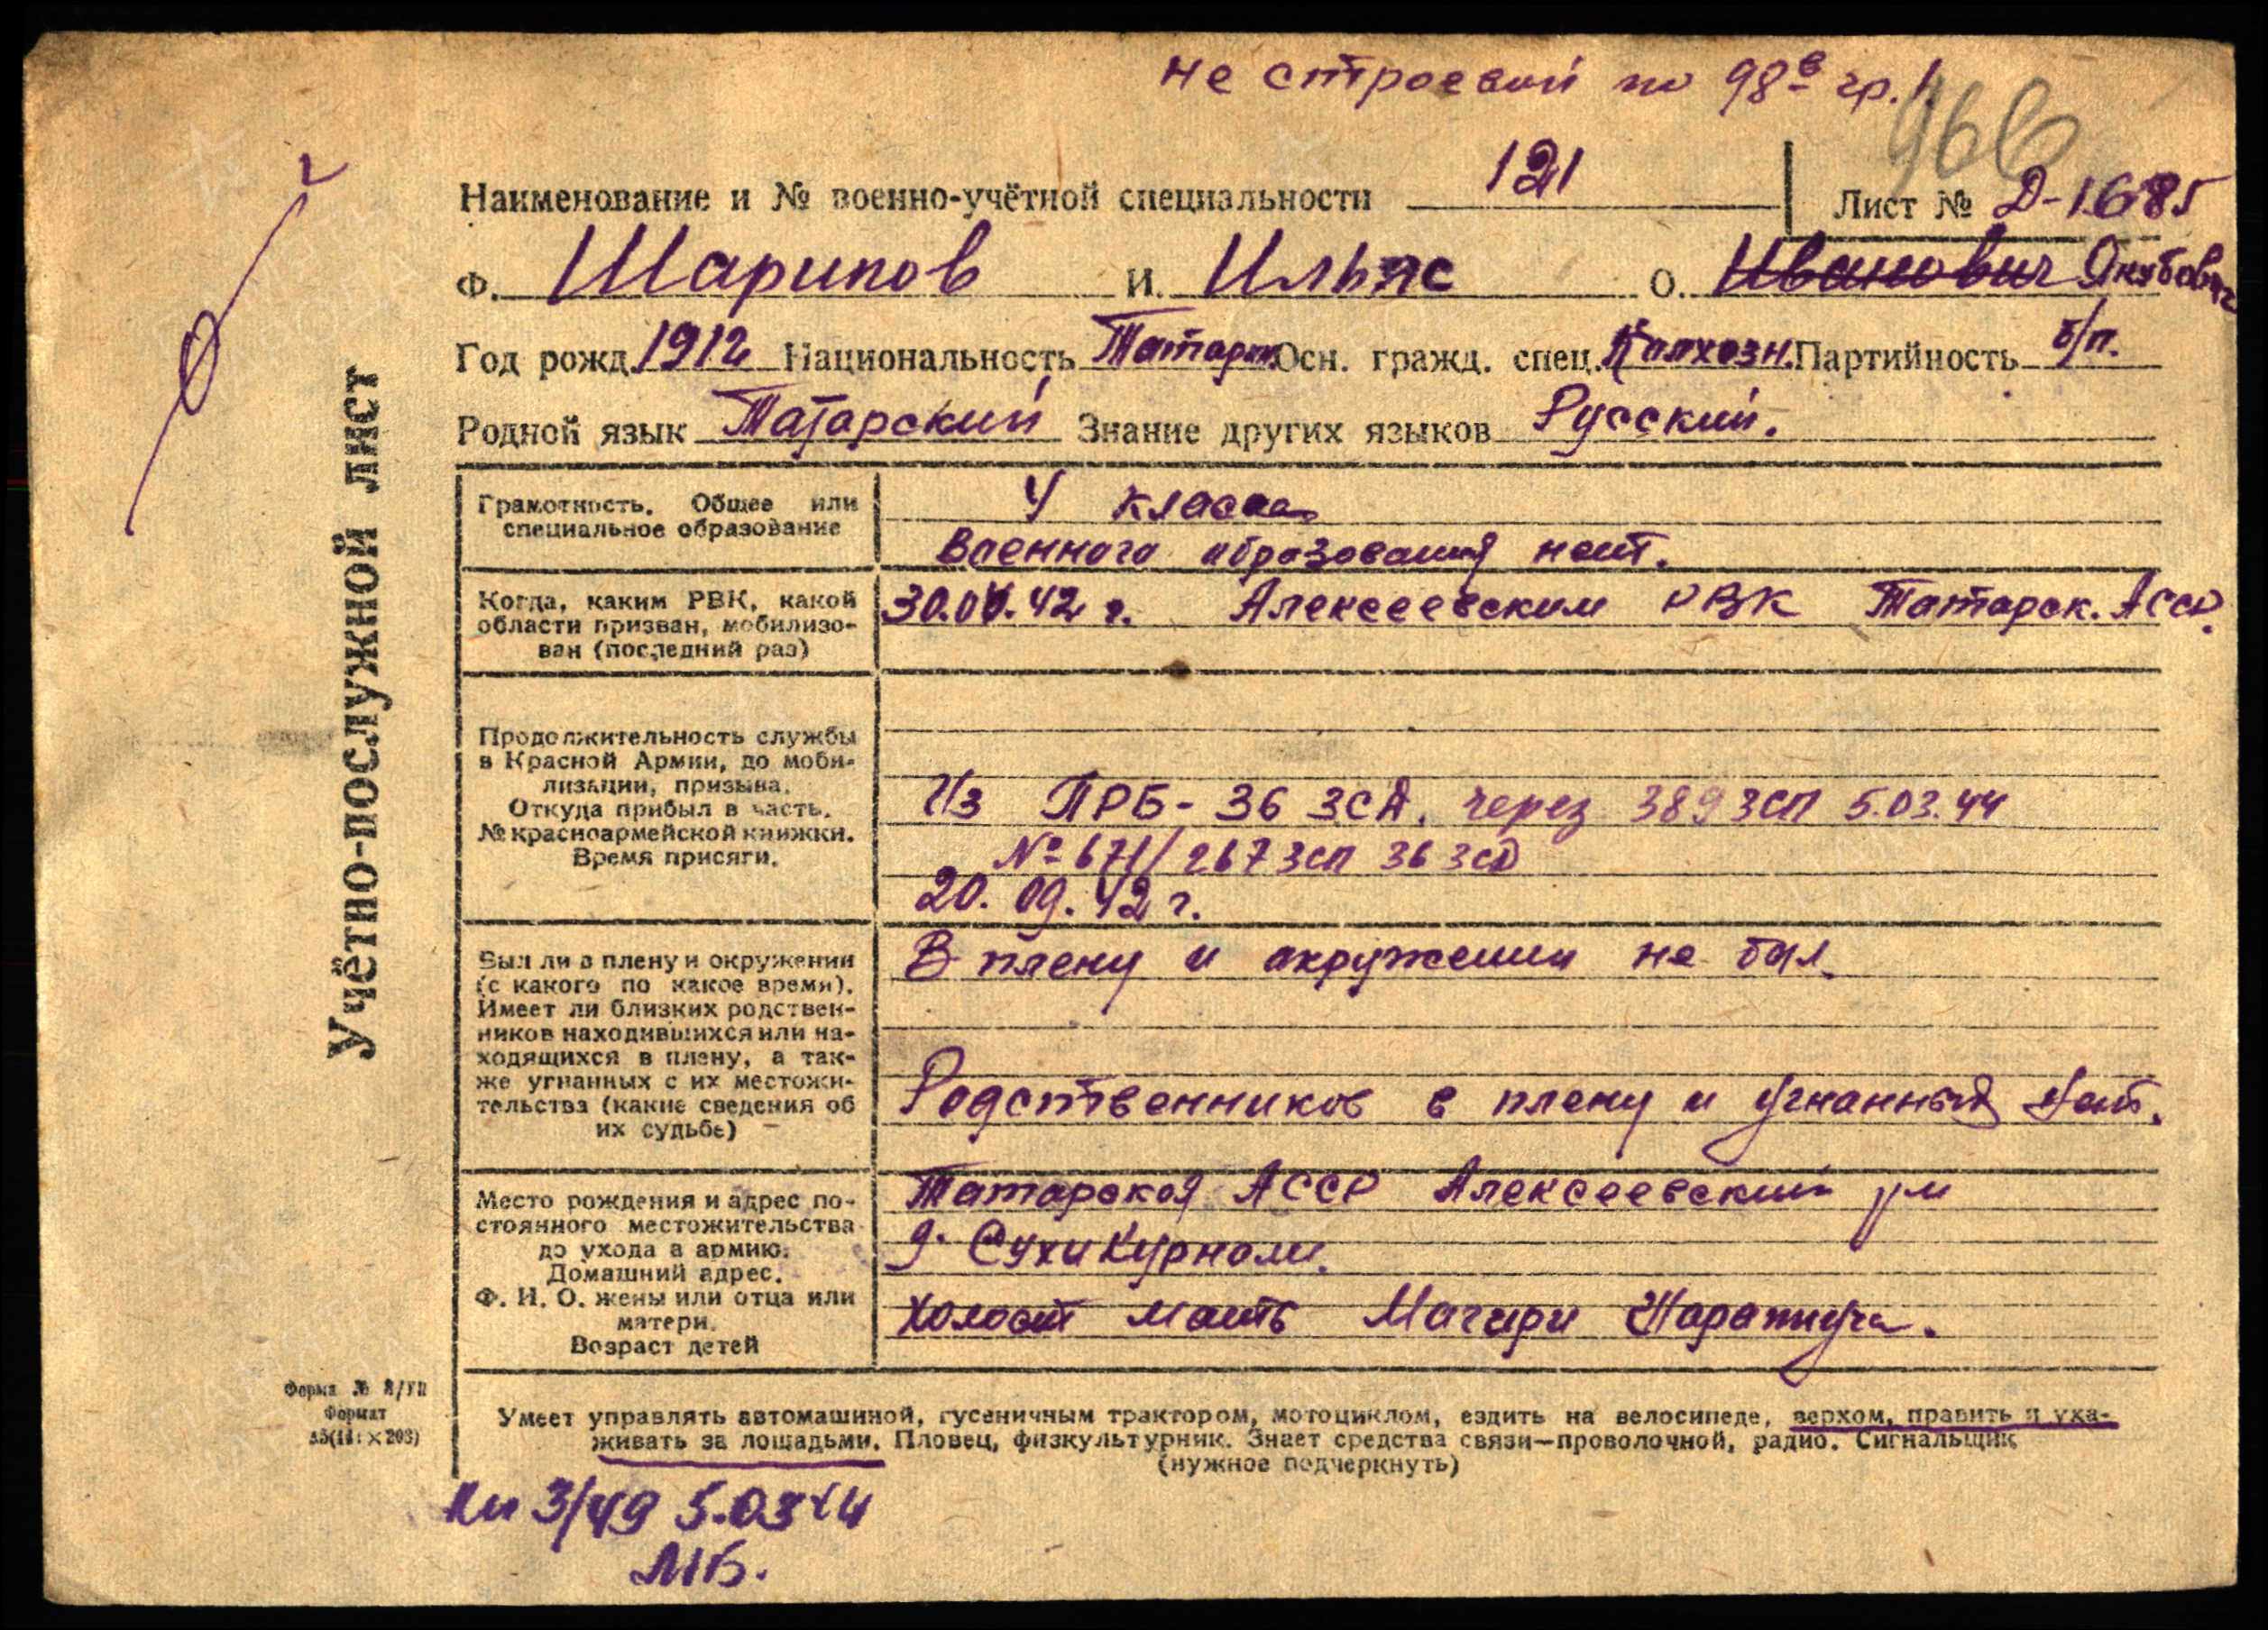 не строевой по 98в гр.!
Наименование и № военно-учётной специальности 121
Лист № Д-1685
Ф. Шарипов И. Ильяс О. Иванович Якубович
Год рожд. 1912 Национальность Татарин Осн. гражд. спец. Колхозн. Партийность б/п.
Родной язык Татарский Знание других языков Русский.
Учётно-послужной лист
Грамотность. Общее или
специальное образование
4 класса
Военного образования нет.
Когда, каким РВК, какой
области призван, мобилизо-
ван (последний раз)
42 г. Алексеевским РВК Татарск. АССР.
Продолжительность службы
в Красной Армии, до моби-
лизации, призыва.
Откуда прибыл в часть.
№ красноармейской книжки.
Время присяги.
Из ПРБ-36 ЗСД, через 389 ЗСП 5.03.44
№ 671/267 зсп 36 зсд
20.09.42 г.
Был ли в плену и окружении
(с какого по какое время).
Имеет ли близких родствен-
ников находившихся или на-
ходящихся в плену, а так-
же угнанных с их местожи-
тельства (какие сведения об
их судьбе)
В плену и окружении не был.
Родственников в плену и угнанных нет.
Место рождения и адрес по-
стоянного местожительства
до ухода в армию.
Домашний адрес.
Ф. И. О. жены или отца или
матери.
Возраст детей
Татарская АССР Алексеевский р-н
д. Сухи Курнали.
Холост мать Магири
Форма № 2/УП
Формат
А5(11:×203)
Умеет управлять автомашиной, гусеничным трактором, мотоциклом, ездить на велосипеде, верхом, править и уха-
живать за лошадьми. Пловец, физкультурник. Знает средства связи—проволочной, радио. Сигнальщик
(нужное подчеркнуть)
3/49 5.03.44